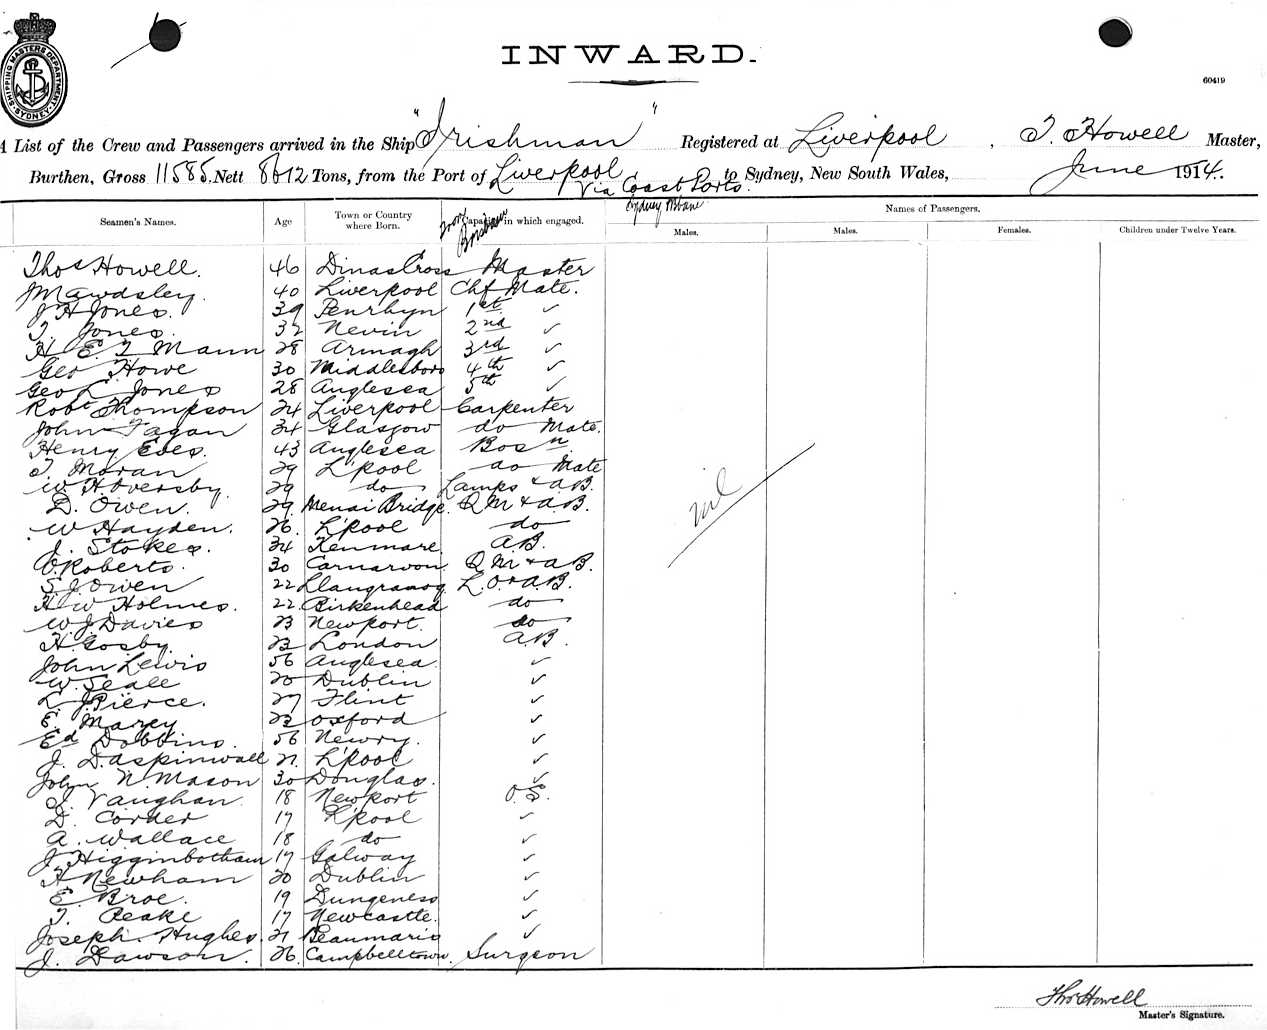 SHIPPING MASTERS DEPARTMENT SYDNEY
INWARD.
60419
A List of the Crew and Passengers arrived in the Ship "Irishman" Registered at Liverpool, T. Howell Master,
Burthen, Gross 11585. Nett 8612 Tons, from the Port of Liverpool to Sydney, New South Wales, June 1914.
Via Coast Ports.
Seamen's Names. Age Town or Country where Born. Capacity in which engaged. Names of Passengers.
from Brisbane
Sydney
Males. Males. Females. Children under Twelve Years.
Thos Howell. 46 Dinas Cross Master
J Mawdsley. 40 Liverpool Chf Mate.
J H Jones. 39 Penrhyn 1st ✓
T. Jones. 32 Nevin 2nd ✓
H E T Mann 28 Armagh 3rd ✓
Geo Howe 30 Middlesboro 4th ✓
Geo L Jones 28 Anglesea 5th ✓
Robt Thompson 24 Liverpool Carpenter
John Fagan 34 Glasgow do Mate.
Henry Eves. 43 Anglesea Bosn
T. Moran 29 L'pool do Mate
W Hoversby. 29 do Lamps & AB.
D. Owen. 29. Menai Bridge. Q M & AB.
W Hayden. 26. L'pool do
J. Stokes. 34 Kenmare. AB.
O. Roberts. 30 Carnarvon. Q M & AB.
S J Owen 22 L.O & AB.
H W Holmes. 22. Birkenhead do
W J Davies 23 Newport. do
H Gosby. 23 London AB.
John Lewis 56 Anglesea. ✓
W. Seale 20 Dublin ✓
L J Pierce. 27 Flint ✓
E. Marey 23 Oxford ✓
Ed Dobbins. 56 Newry. ✓
J. Daspinwall 21. L'pool ✓
John N. Mason 30 Douglas. ✓
J. Vaughan 18 Newport O.S.
D. Corner 17 L'pool ✓
A. Wallace 18 do ✓
J Higginbotham 17 Galway ✓
H Newham 20 Dublin ✓
E. Broe. 19 Dungeness ✓
T. Peake 17 Newcastle. ✓
Joseph Hughes. 21 Beaumaris ✓
J. Dawson. 26. Campbelltown. Surgeon
nil
Thos Howell
Master's Signature.